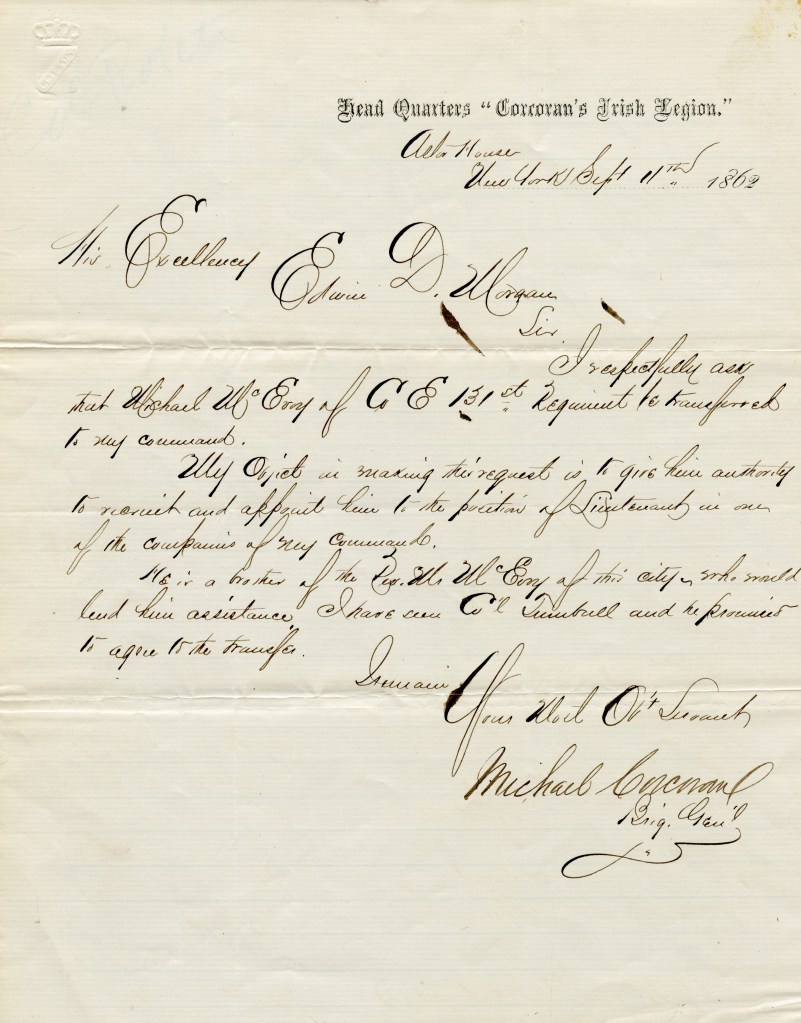 Head Quarters "Corcoran's Irish Legion."
Astor House
New York Sept 11th 1862
His Excellency
Edwin D. Morgan
Sir.
I respectfully ask
that Michael McEvoy of Co E 131st Regiment be transferred
to my command.
My Object in making this request is to give him authority
to recruit and appoint him to the position of Lieutenant in one
of the companies of my Command.
He is a brother of the Rev. Mr McEvoy of this city, who would
lend him assistance. I have seen Col Turnbull and he promised
to agree to the transfer.
I remain
Yours Most Obt Servant
Michael Corcoran
Brig. Gen'l